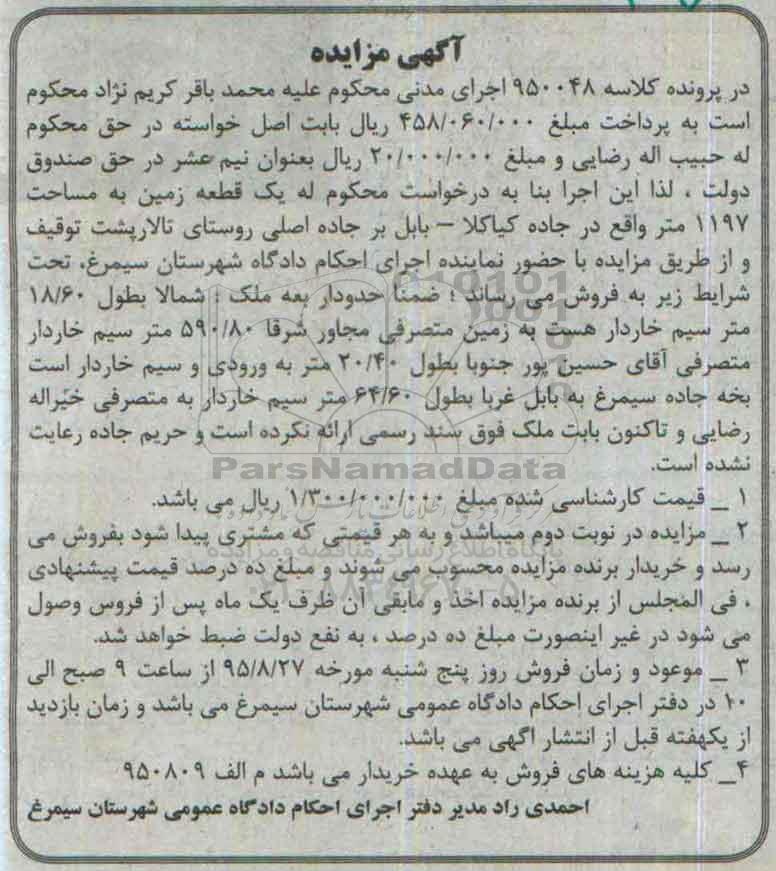 آگهی مزایده
در پرونده کلاسه ۹۵۰۰۴۸ اجرای مدنی محکوم علیه محمد باقر کریم نژاد محکوم
است به پرداخت مبلغ ۴۵۸/۰۶۰/۰۰۰ ریال بابت اصل خواسته در حق محکوم
له حبیب اله رضایی و مبلغ ۲۰/۰۰۰/۰۰۰ ریال بعنوان نیم عشر در حق صندوق
دولت ، لذا این اجرا بنا به درخواست محکوم له یک قطعه زمین به مساحت
۱۱۹۷ متر واقع در جاده کیاکلا – بابل بر جاده اصلی روستای تالارپشت توقیف
و از طریق مزایده با حضور نماینده اجرای احکام دادگاه شهرستان سیمرغ، تحت
شرایط زیر به فروش می رساند ؛ ضمنا حدودار بعه ملک ؛ شمالا بطول ۱۸/۶۰
متر سیم خاردار هست به زمین متصرفی مجاور شرقا ۵۹۰/۸۰ متر سیم خاردار
متصرفی آقای حسین پور جنوبا بطول ۲۰/۴۰ متر به ورودی و سیم خاردار است
بخه جاده سیمرغ به بابل غربا بطول ۶۴/۶۰ متر سیم خاردار به متصرفی خیراله
رضایی و تاکنون بابت ملک فوق سند رسمی ارائه نکرده است و حریم جاده رعایت
نشده است.
ParsNamadData
۱ _ قیمت کارشناسی شده مبلغ ۱/۳۰۰/۰۰۰/۰۰۰ ریال می باشد.
۲ _ مزایده در نوبت دوم میباشد و به هر قیمتی که مشتری پیدا شود بفروش می
پایگاه اطلاع رسانی مناقصه و مزایده
رسد و خریدار برنده مزایده محسوب می شوند و مبلغ ده درصد قیمت پیشنهادی
، فی المجلس از برنده مزایده اخذ و مابقی آن ظرف یک ماه پس از فروس وصول
می شود در غیر اینصورت مبلغ ده درصد ، به نفع دولت ضبط خواهد شد.
۳ _ موعود و زمان فروش روز پنج شنبه مورخه ۹۵/۸/۲۷ از ساعت ۹ صبح الی
۱۰ در دفتر اجرای احکام دادگاه عمومی شهرستان سیمرغ می باشد و زمان بازدید
از یکهفته قبل از انتشار اگهی می باشد.
۴_ کلیه هزینه های فروش به عهده خریدار می باشد م الف ۹۵۰۸۰۹
احمدی راد مدیر دفتر اجرای احکام دادگاه عمومی شهرستان سیمرغ